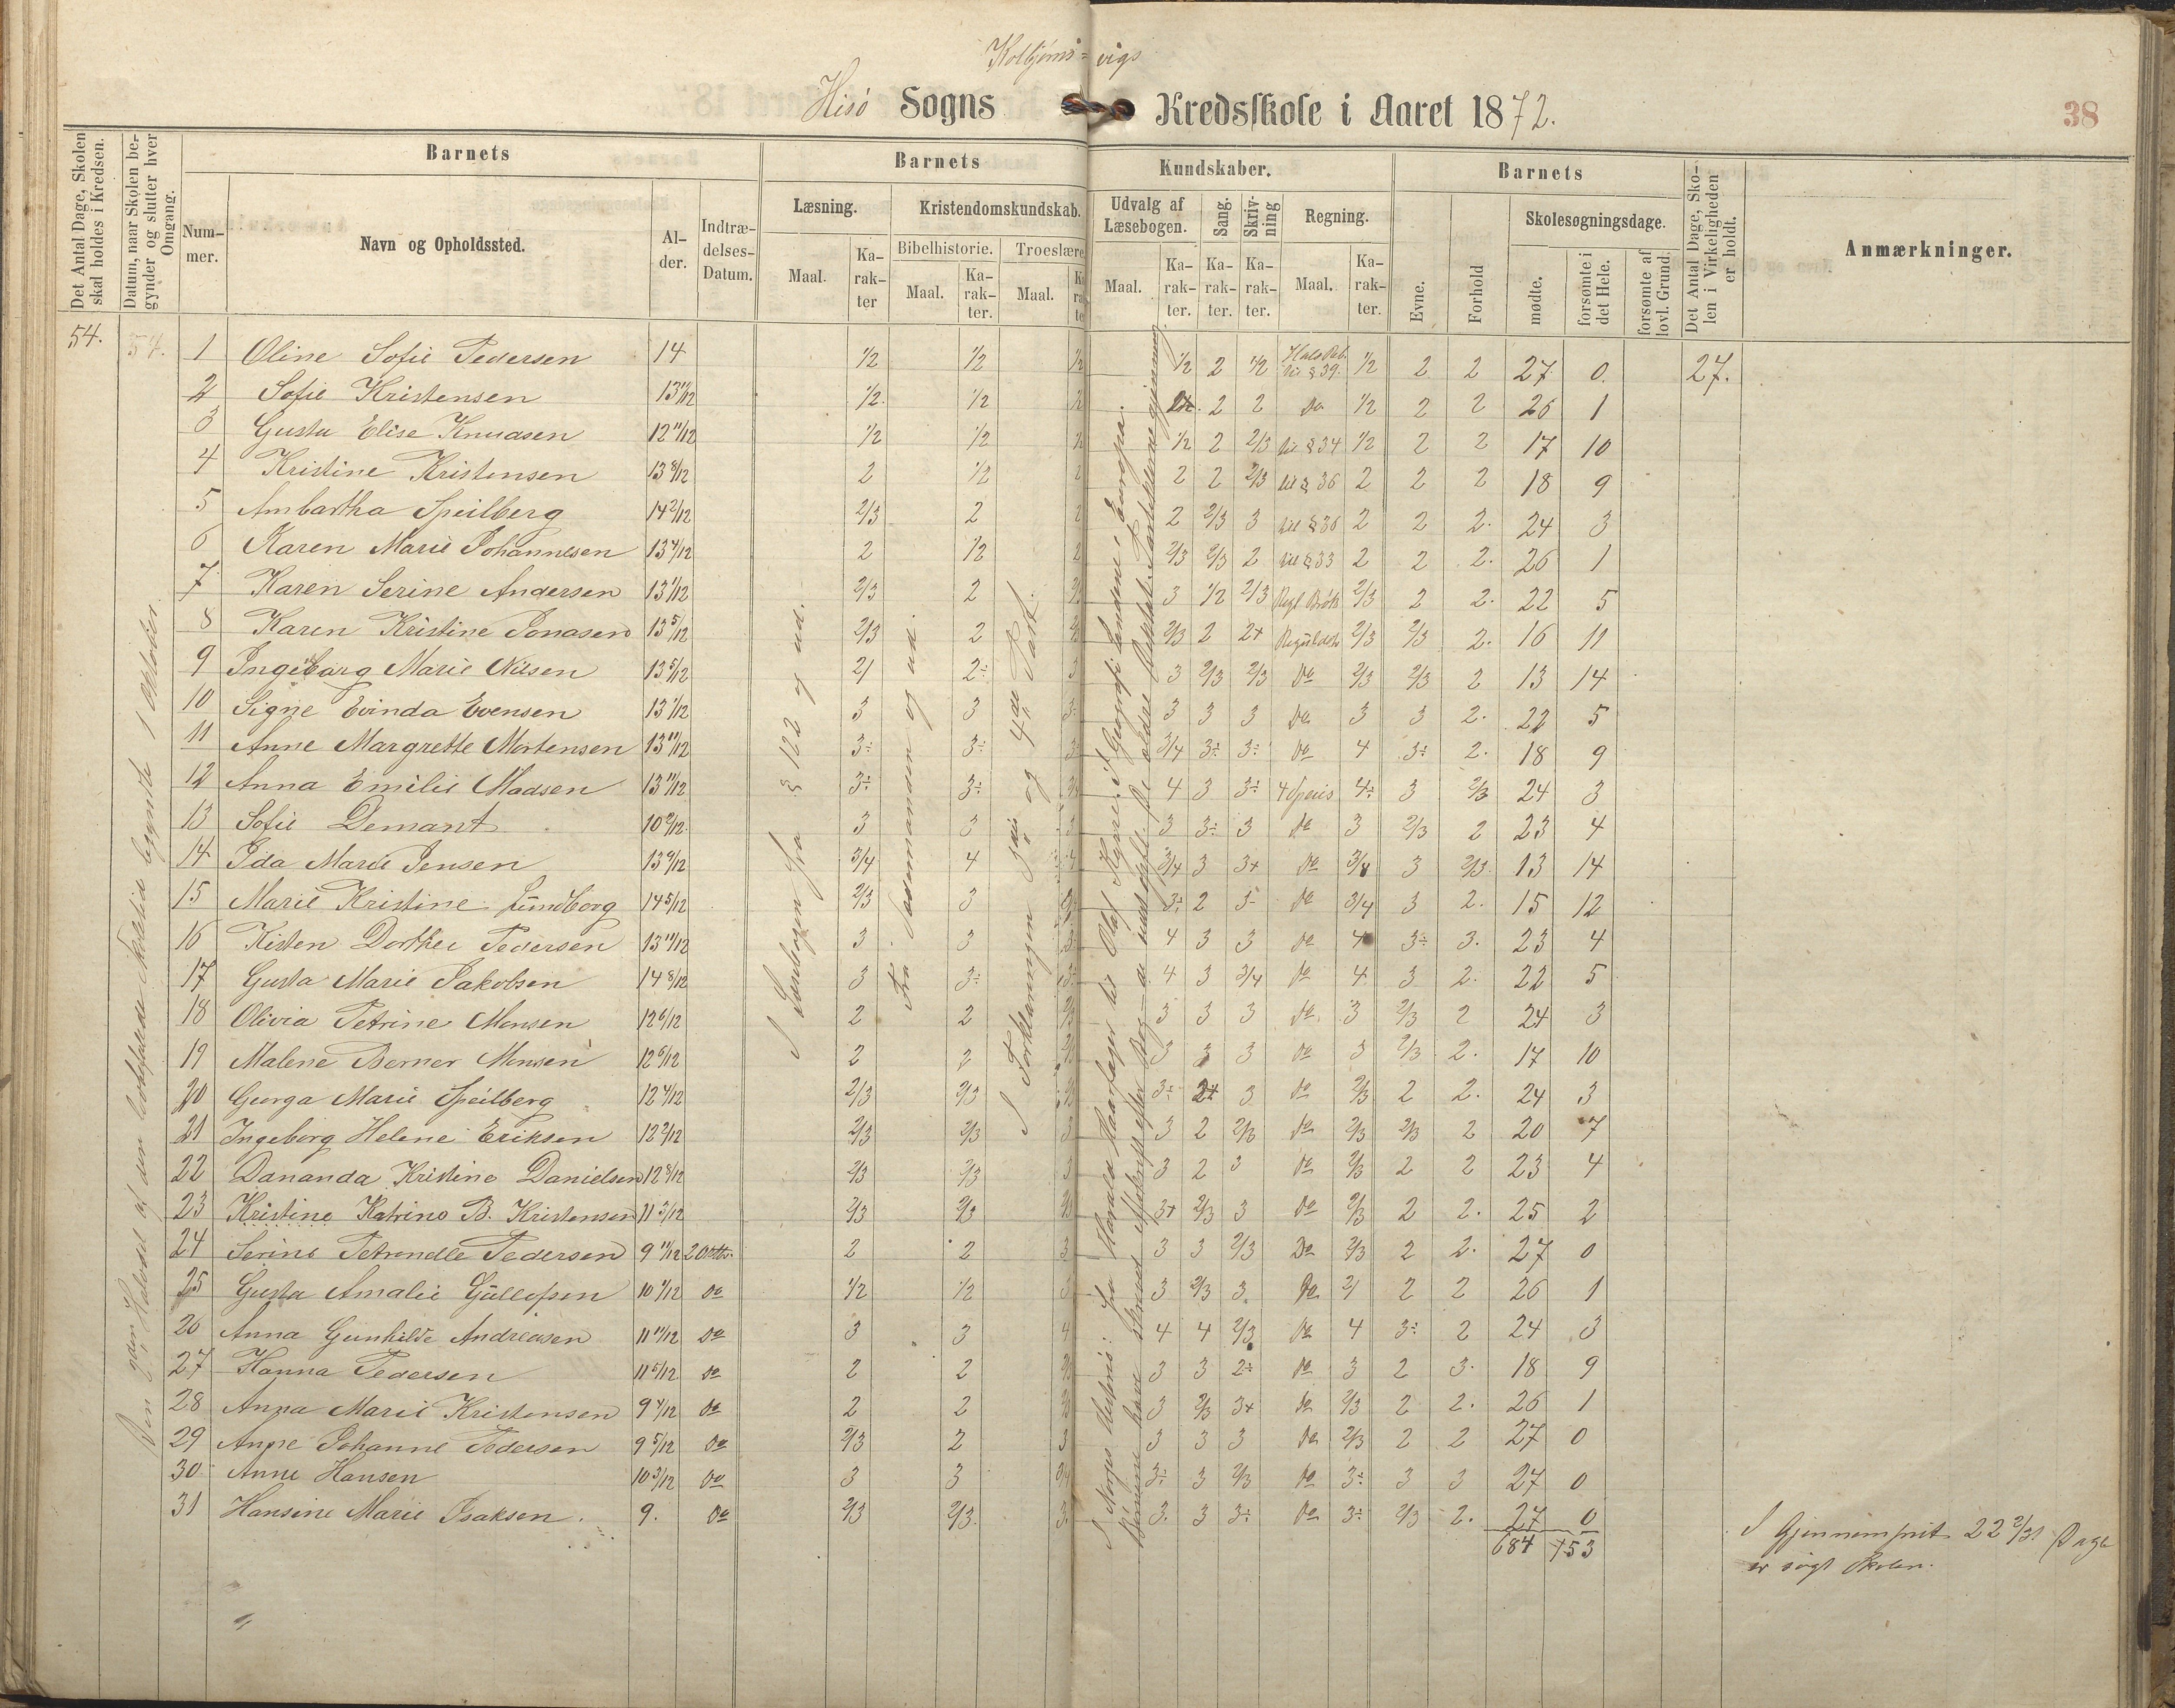 Kolbjørns=vigs
Hisö Sogns Kredsskole i Aaret 1872.
38
Det Antal Dage, Skolen skal holdes i Kredsen.
Datum, naar Skolen begynder og slutter hver Omgang.
Barnets
Nummer.
Navn og Opholdssted.
Alder.
Indtrædelses-Datum.
Barnets Kundskaber.
Læsning.
Maal.
Karakter
Kristendomskundskab.
Bibelhistorie.
Maal.
Karakter.
Troeslære
Maal.
Udvalg af Læsebogen.
Maal.
Karakter.
Sang.
Karakter.
Skrivning
Karakter.
Regning.
Maal.
Karakter.
Barnets
Evne.
Forhold
Skolesøgningsdage.
mødte.
forsømte i det Hele.
forsømte af lovl. Grund.
Det Antal Dage, Skolen i Virkeligheden er holdt.
Anmærkninger.
54. 54.
1 Oline Sofie Pedersen 14 1/2 1/2 1/2 1/2 2 1/2 til § 39. 1/2 2 2 27 0. 27.
2 Sofie Kristensen 13 11/12 1/2. 1/2 1/2 2 2 Do 1/2 2 2 26 1
3 Gusta Elise Knudsen 12 11/12 1/2 1/2 1/2 1/2 2 2/3 til § 34 1/2 2 2 17 10
4 Kristine Kristensen 13 8/12 2 1/2 2 2 2 2/3 til § 36 2 2 2 18 9
5 Ambartha Speilberg 14 2/12 2/3 2 2 2 2/3 3 til § 36 2 2 2. 24 3
6 Karen Marie Johannesen 13 4/12 2 1/2 2 2/3 2/3 2 til § 33 2 2 2. 26 1
7 Karen Serine Andersen 13 1/12 2/3 2 3 1/2 2/3 2/3 2 2. 22 5
8 Karen Kristine Jonasen 13 5/12 2/3 2 2/3 2 2+ 2/3 2/3 2. 16 11
9 Ingeborg Marie Nilsen 13 5/12 2/ 2÷ 3 3 2/3 2/3 Do 2/3 2/3 2 13 14
10 Signe Evinda Evensen 13 1/12 3 3 3 3 3 Do 3 3 2. 22 5
11 Anne Margrette Mortensen 13 11/12 3÷ 3÷ 3/4 3÷ 3÷ Do 4 3÷ 2. 18 9
12 Anna Emilie Madsen 13 11/12 3÷ 3÷ 4 3 3÷ 4 Speies 4÷ 3 2/3 24 3
13 Sofie Demant 10 9/12 3 3 3 3÷ 3 Do 3 2/3 2 23 4
14 Ida Marie Jensen 13 9/12 3/4 4 3/4 3 3+ Do 3/4 3 2/3 13 14
15 Marie Kristine Lundborg 14 5/12 2/3 3 3÷ 2 3- Do 3/4 3 2. 15 12
16 Kisten Dorthee Pedersen 13 11/12 3 3 4 3 3 Do 4 3÷ 3. 23 4
17 Gusta Marie Jakobsen 14 8/12 3 3÷ 4 3 3/4 Do 4 3 2. 22 5
18 Olivia Petrine Monsen 12 6/12 2 2 3 3 3 Do 3 2/3 2 24 3
19 Malene Berner Monsen 12 6/12 2 2 3 3 3 Do 3 2/3 2. 17 10
20 Gurga Marie Speilberg 12 4/12 2/3 2/3 3÷ 2+ 3 Do 2/3 2 2. 24 3
21 Ingeborg Helene Eriksen 12 2/12 2/3 2/3 3 3 2 2/3 Do 2/3 2/3 2 20 7
22 Dananda Kristine Danielsen 12 8/12 2/3 2/3 3 3 2 3 Do 2/3 2 2 23 4
23 Kristine Katrine B. Kristensen 11 3/12 2/3 2/3 3+ 2/3 3 Do 2/3 2 2. 25 2
24 Serine Petrendle Pedersen 9 11/12 2 Oktbr. 2 2 3 3 3 2/3 Do 2/3 2 2. 27 0
25 Gusta Amalie Gullofsen 10 1/12 Do 1/2 1/2 3 3 2/3 3 Do 2/ 2 2 26 1
26 Anna Gunhilde Andreasen 11 11/12 Do 3 3 4 4 4 2/3 Do 4 3÷ 2 24 3
27 Hanna Pedersen 11 5/12 Do 2 2 3 3 2÷ Do 3 2 3. 18 9
28 Anna Marie Kristensen 9 4/12 Do 2 2 3 2/3 3+ Do 2/3 2 2. 26 1
29 Anne Johanne Pedersen 9 5/12 Do 2/3 2 3 3 3 3 Do 2/3 2 2 27 0
30 Anne Hansen 10 3/12 Do 3 3 3÷ 3 2/3 Do 3÷ 3 3 27 0
31 Hansine Marie Isaksen. 9. Do 2/3 2/3. 3. 3. 3 3÷ Do 3÷ 2/3 2. 27 0
684 153
I Gjennemsnit 22 2/31 Dage
er søgt Skolen.
Den 2den Halvdel af den lovbefalede Skoletid begyndte 1 Oktober.
I Læsebogen fra § 122 og ud.
Fra og ud.
I Forklaringen 3die og 4de Part.
I Norges Historie: fra Harald Haarfager til Olaf Kyrre. I Geografi: Landene i Europa.